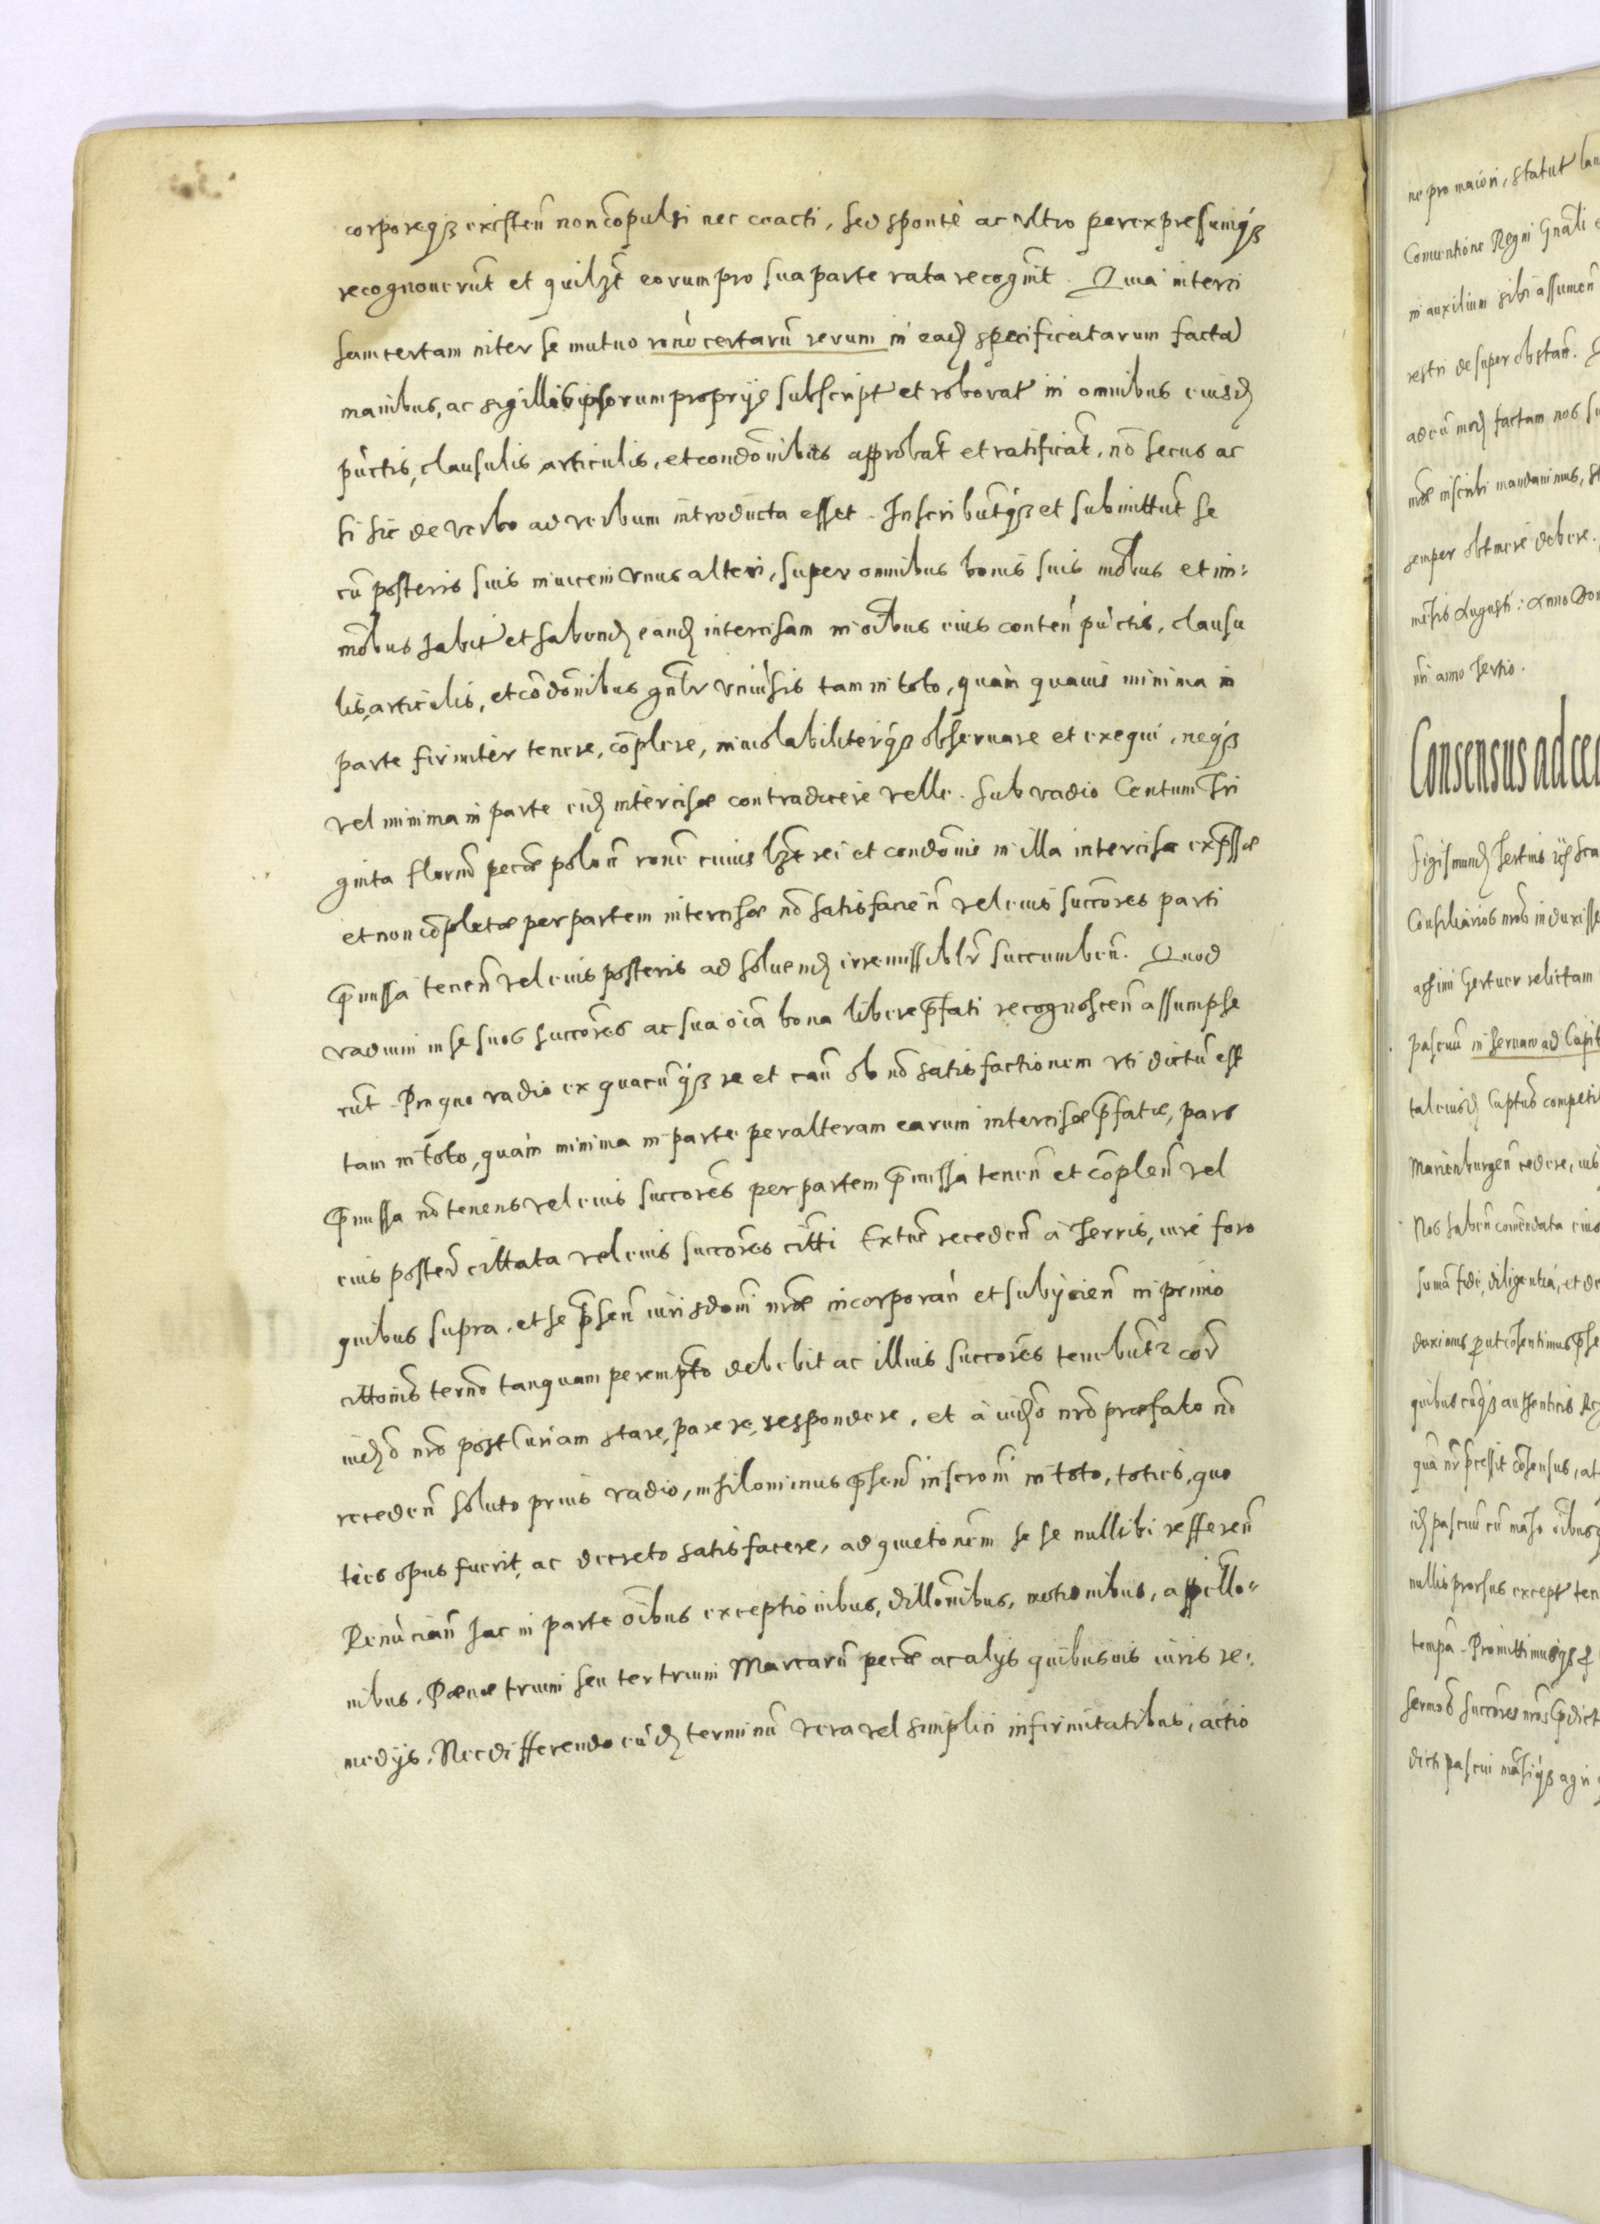 corporeqꝫ existen̄ non cōpulsi nec coacti, sed spontè ac vltro per expressumqꝫ
recognouerūt et quilꝫt eorum pro sua parte rata recogn̄t. Quia interci
sam certam inter se mutuo ron̄e certarū rerum in eadꝫ specificatarum factā
manibus, ac sigillis ipsorum proprijs subscript et roborat in omnibus eiusdꝫ
pūctis, clausulis articulis, et condōnibus approbāt et ratificāt, nō secus ac
si sic de verbo ad verbum introducta esset. Inscribūtqꝫ et submittūt se
cū posteris suis inuicem vnus alteri, super omnibus bonis suis mōbus et im:
mōbus habit et habendꝫ eandꝫ intercisam in oībus eius conten̄ pūctis, clausu
lis, articulis, et cōdōnibus gn̄lr vniūsis tam in toto, quàm quauis minima in
parte firmiter tenere, cōplere, inuiolabiliterqꝫ obseruare et exequi, neqꝫ
vel minima in parte eidꝫ intercisæ contradicere velle. Sub vadio Centum Tri
ginta florn̄ pecāe polon̄ ron̄e cuiuslꝫt rei et condōnis in illa intercisa exp̄ssæ
et non cōpletæ per partem intercisæ nō satisfacien̄ vel eius succores parti
p̄missa tenen̄ vel eius posteris ad soluendꝫ irremissiblr̄ succumben̄. Quod
vadium in se suos succōres ac sua oīa bona libere p̄fati recognoscen̄ assumpse
rūt. Pro quo vadio ex quacūqꝫ re et cau̅ ob nō satisfactionem vti dictū est
tam in toto, quàm minima in parte per alteram earum intercisæ p̄fatæ, pars
p̄missa nō tenens vel eius succōres per partem p̄missa tenen̄ et cōplen̄ vel
eius poster̄ cittata vel eius succōres citt̄i Ex tūc receden̄ à terris, iure foro
quibus supra, et se p̄sen̄ iurisdoni nr̄æ incorporan̄ et subijcien̄ in primo
cittonis termō tanquam perempt̄o debebit ac illius succōres tenebūtr cor̄
iudꝫo nr̄o post Curiam stare, parere, respondere, et à iudꝫo nr̄o præfato nō
receden̄ soluto prius vadio, nihilominus p̄sen̄ inscroni in toto, toties, quo
ties opus fuerit, ac decreto satisfacere, ad quietonem se se nullibi refferen̄
Renūcian̄ hac in parte oībus exceptionibus, dillonibus, motionibus, appello-
nibus, Pœnæ trium seu ter trium Marcarū pecāe ac alijs quibusuis iuris re:
medijs. Nec differendo eūdꝫ terminū vera vel simplici infirmitatibus, actio
ne pro maiori, statut
Conuentione Regni Gn̄ali
in auxilium sibi assumen̄
restri desuper obstan̄.
ad eū modꝫ factam nos
nr̄æ inscribi mandauimus,
semper obtinere debere.
mēsis Augusti: Anno
nri anno tertio.
Consensus ad
Sigismundꝫ Tertius
Consiliarios nr̄os induxisse
relictam
pascuū in Seruano ad
tal eiusdꝫ Captus
Marienburgen̄ cedere,
Nos haben̄ comēdata eius
sumā fidē, diligentiā, et
duximus p̄ut cōsentimus
quibuscūqꝫ authenticis
cōsensus,
idꝫ pascuū cū oībus
nullis prorsus except
Promittimusqꝫ
succōres nr̄os
dicti pascui agri